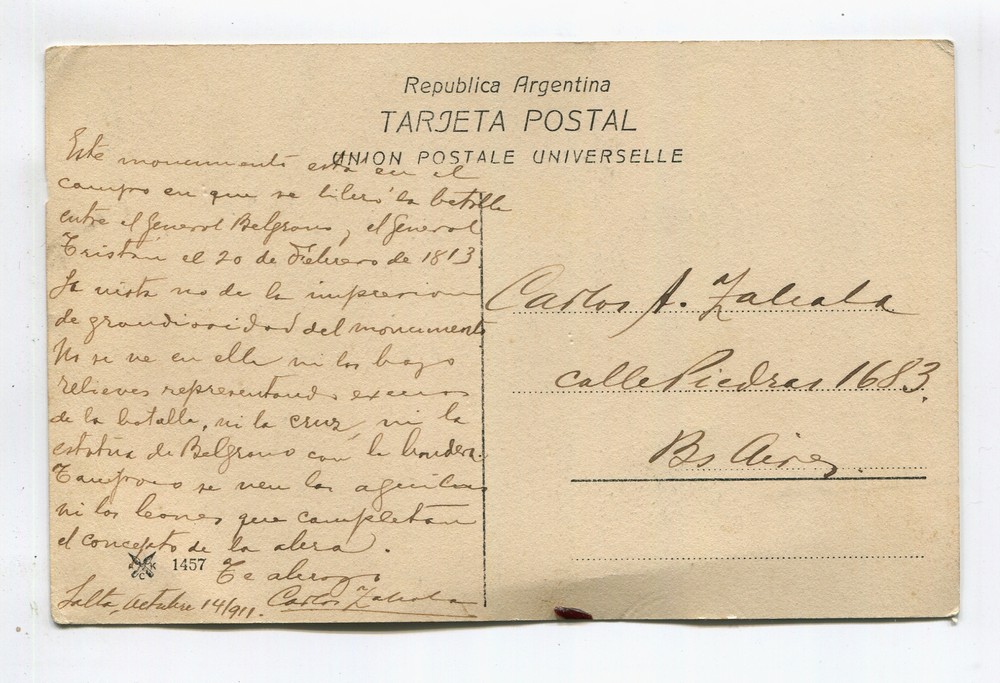 Republica Argentina
TARJETA POSTAL
UNION POSTALE UNIVERSELLE
Este monumento está en el
campo en que se libró la batalla
entre el General Belgrano y el General
Tristán el 20 de Febrero de 1813.
La vista no da la impresion
de grandiosidad del monumento
No se ve en ella ni los bajo
relieves representando excenas
de la batalla, ni la cruz, ni la
estatua de Belgrano con la bandera.
Tampoco se ven las aguilas
ni los leones que completan
el concepto de la obra.
Te abrazo
Salta, Octubre 14/911. Carlos Zabala
1457
Carlos A. Zabala
calle Piedras 1683.
Bs Aires.